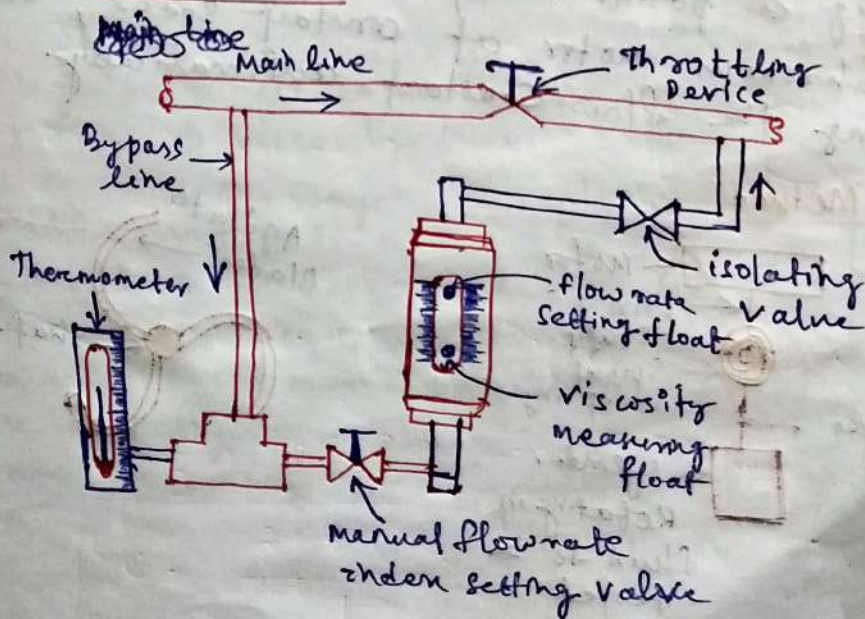 Main line
Throttling
Device
Bypass
line
Thermometer
isolating
valve
flow rate
setting float
viscosity
measuring
float
manual flow rate
index setting valve